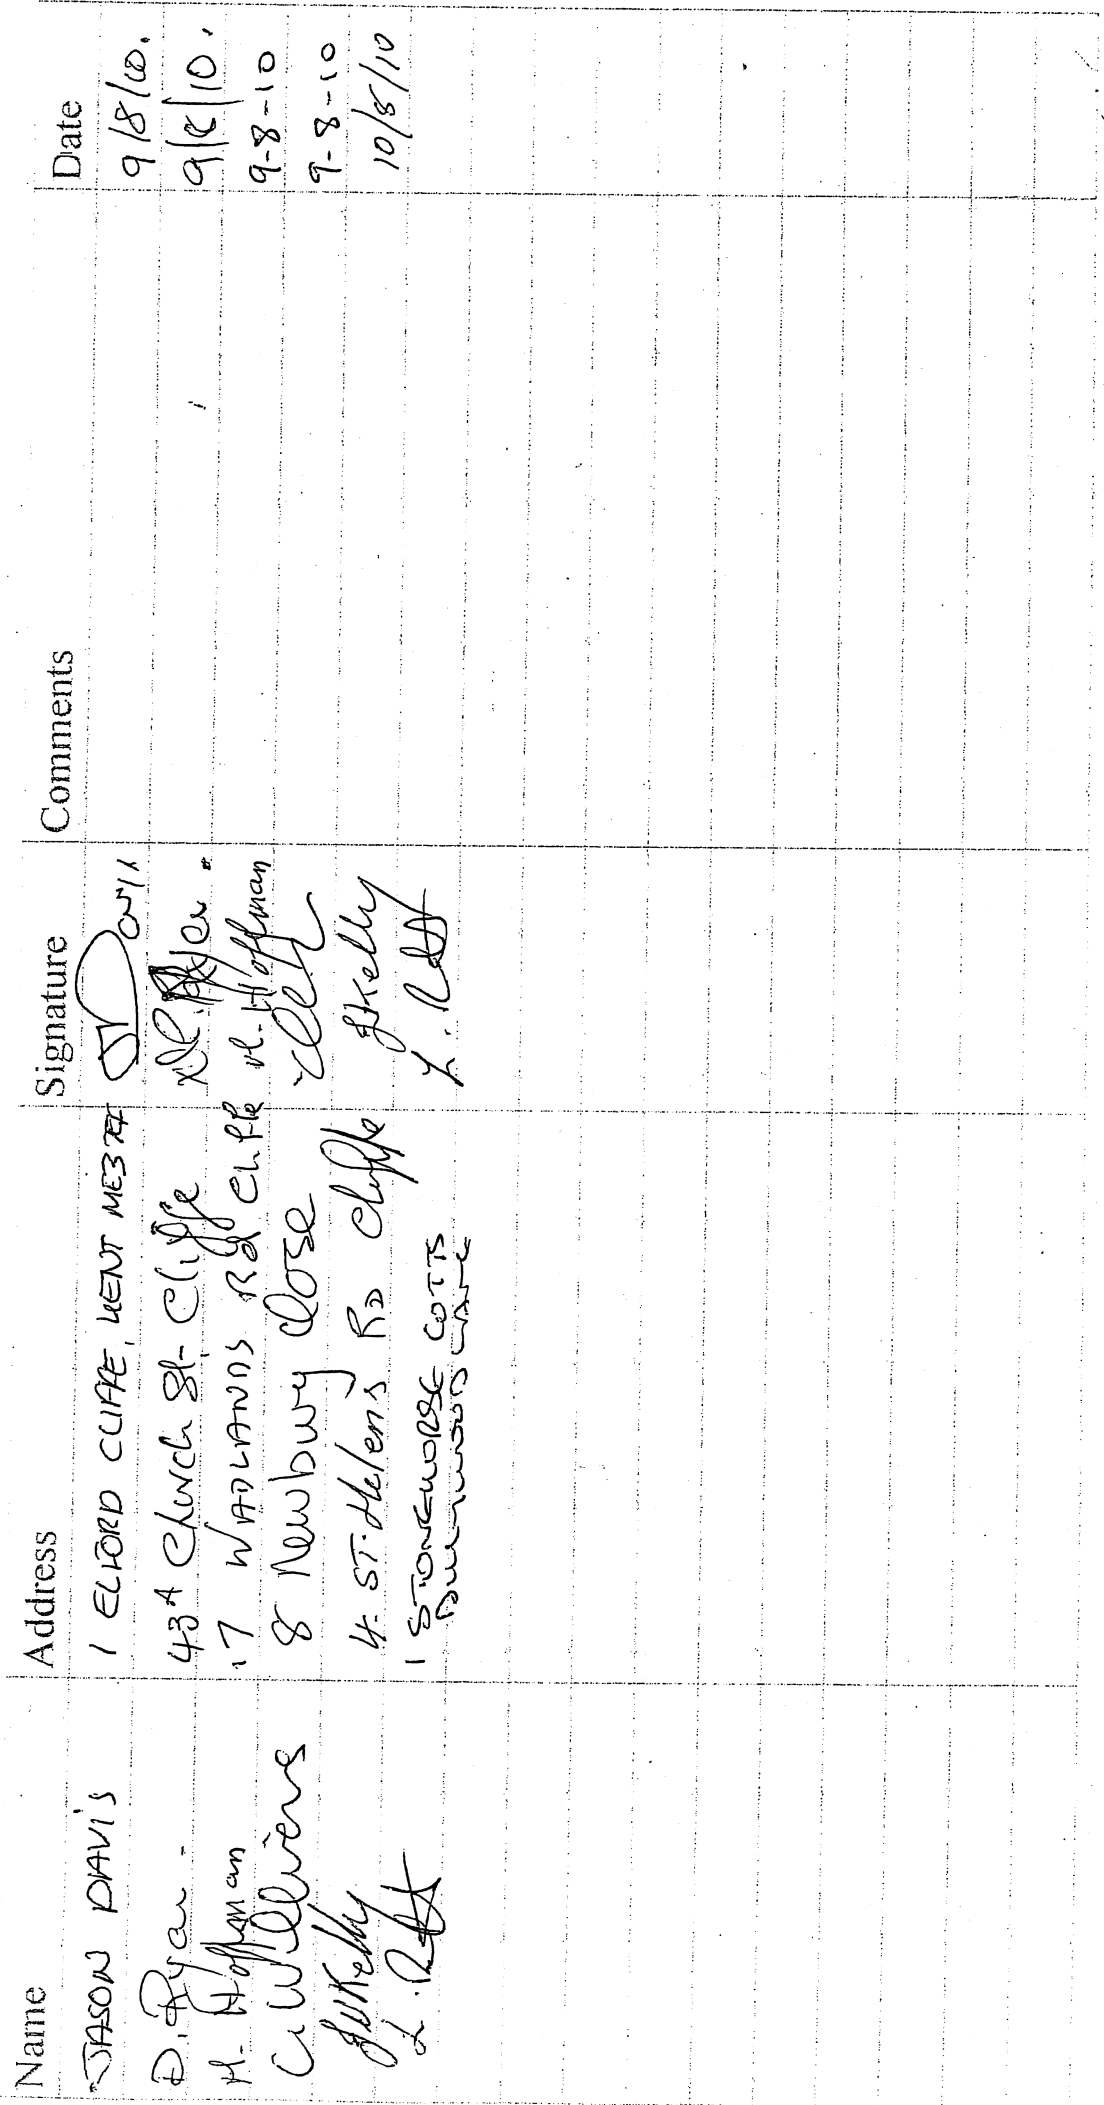 Name Address Signature Comments Date
JASON DAVIS 1 ELFORD CLIFFE, KENT ME3 9/8/10.
D. Ryan. 43A Church St. Cliffe D. Ryan. 9/8/10.
M. Hoffman 17 WADLANDS Rd Cliffe M. Hoffman 9-8-10
C Williams 8 Newbury Close 9-8-10
Kelly 4. ST. Helens RD Cliffe Kelly 10/8/10
L. 1 STONEHORSE COTTS L.
LANE